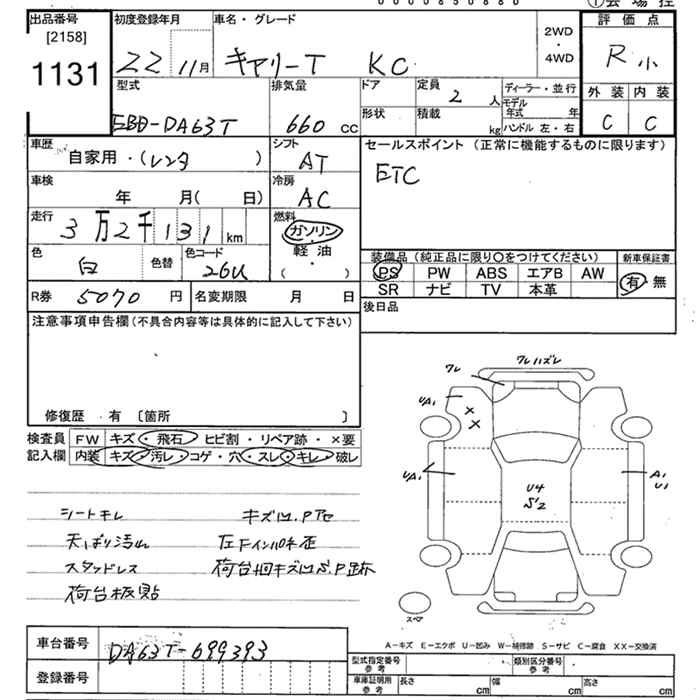 0000850880
①会場控
出品番号 初度登録年月 車名・グレード 2WD・4WD 評価点
[2158]
1131
22 11月 キャリーT KC R小
型式 排気量 ドア 定員 2人 ディーラー・並行 外装 内装
モデル年式 年
EBD-DA63T 660cc 形状 積載 kg ハンドル 左・右 C C
車歴 自家用・(レンタ ) シフト AT セールスポイント (正常に機能するものに限ります)
ETC
車検 年 月( 日) 冷房 AC
走行 3万2千131km 燃料 ガソリン・軽油・( )
色 白 色替 色コード 26U
装備品 (純正品に限り○をつけてください) 新車保証書
PS PW ABS エアB AW 有・無
SR ナビ TV 本革
R券 5070円 名変期限 月 日
後日品
注意事項申告欄 (不具合内容等は具体的に記入して下さい)
修復歴・有 〔箇所 〕
検査員記入欄 FW キズ・飛石・ヒビ割・リペア跡・×要
内装 キズ・汚レ・コゲ・穴・スレ・キレ・破レ
ワレ ワレハズレ
UA1 × ×
UA1 A1 U1
U4 S2
スペア
シートキレ
天ばり汚れ
スタッドレス
荷台板貼
A−キズ E−エクボ U−凹み W−補修跡 S−サビ C−腐食 XX−交換済
車台番号 DA63T-699393
登録番号
型式指定番号 参考 類別区分番号 参考
車庫証明用 参考 長さ cm 幅 cm 高さ cm